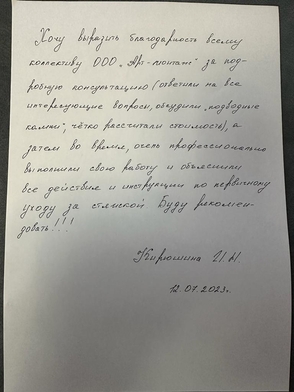 Хочу выразить благодарность всему
коллективу ООО „Арт-монтаж" за под-
робную консультацию (ответили на все
интересующие вопросы, обсудили „подводные
камни", чётко рассчитали стоимость), а
затем во время, очень профессионально
выполнили свою работу и объяснили
все действия и инструкции по первичному
уходу за стяжкой Буду рекомен-
довать!!!
Кирюшина И.Н.
12.07.2023г.